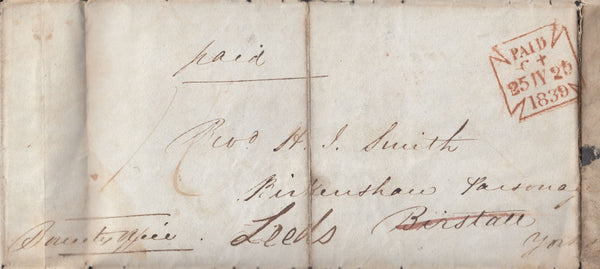 paid
PAID
25 JY 25
1839
Revd H. J. Smith
Birkenshaw Parsonag
Leeds Birstall
Bounty Office.
York